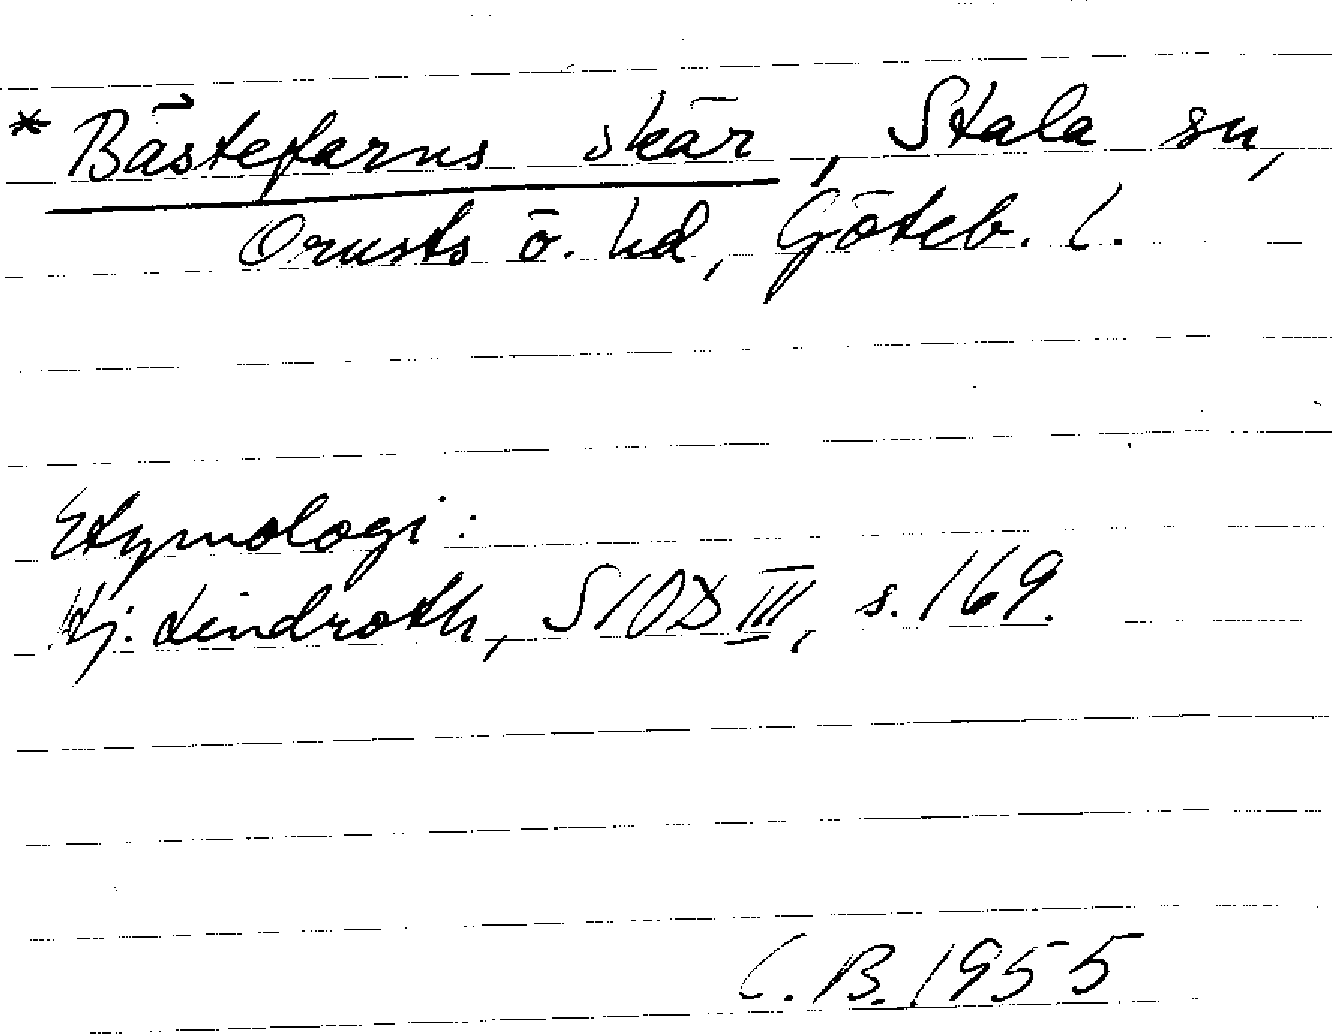 * Bästefarns skär, Stala sn,
Orusts ö. hd, Göteb. l.
Etymologi:
Hj. Lindroth, SIOD III, s. 169.
C. B. 1955